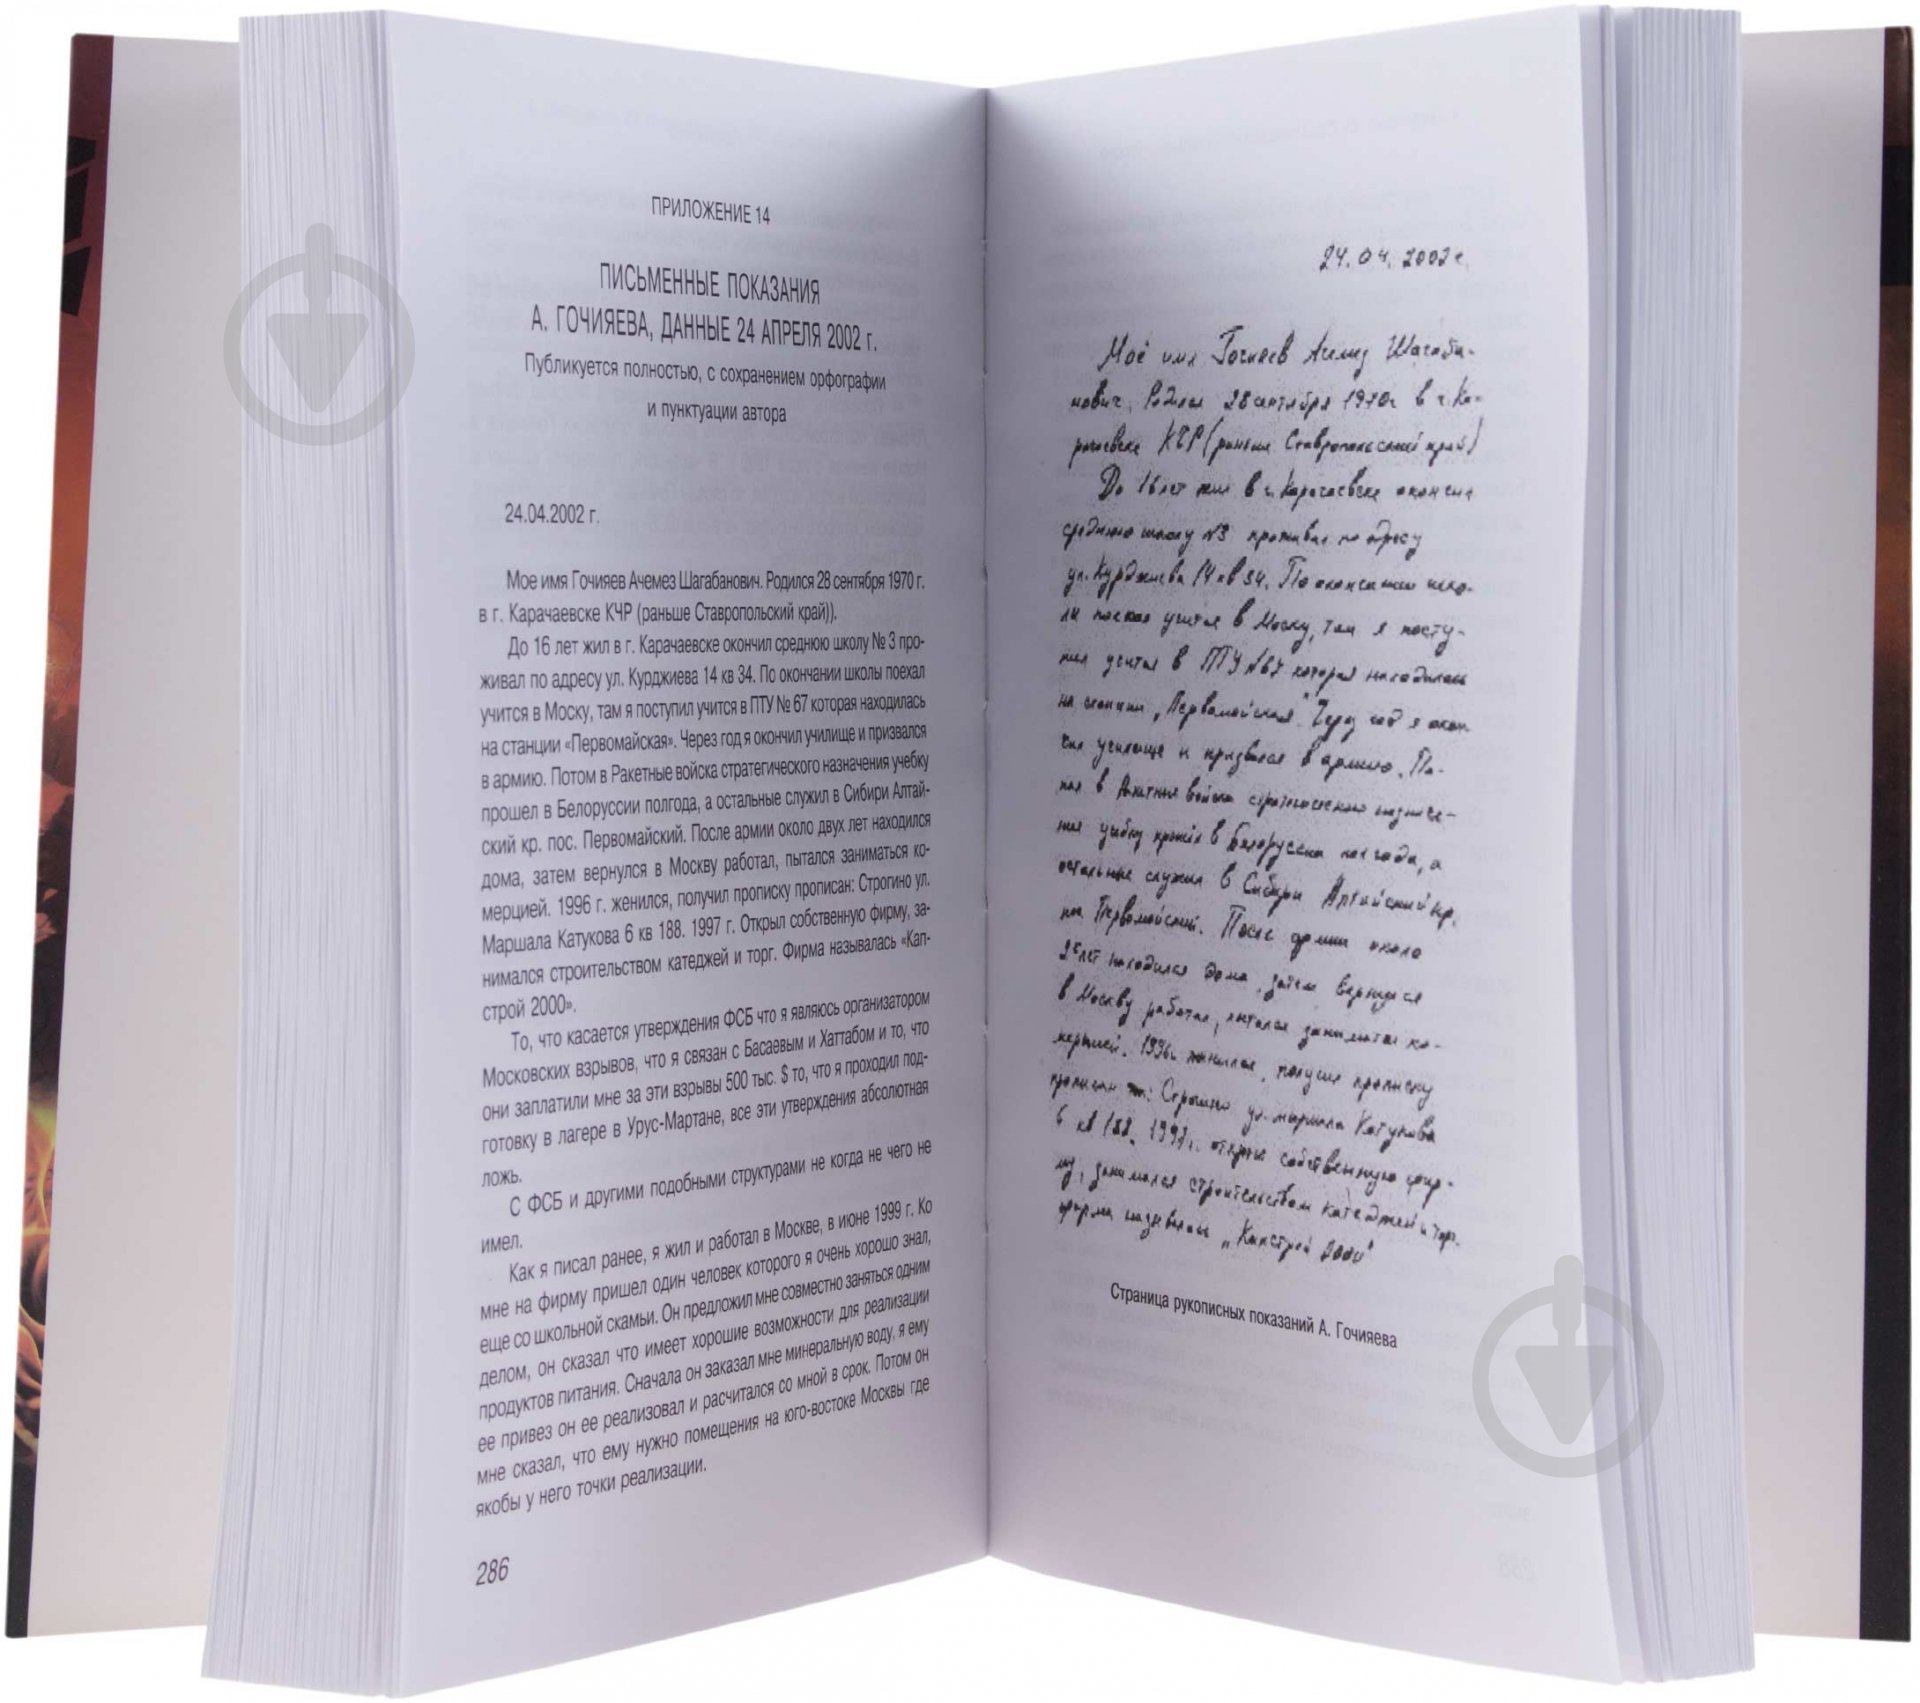 ПРИЛОЖЕНИЕ 14
ПИСЬМЕННЫЕ ПОКАЗАНИЯ
А. ГОЧИЯЕВА, ДАННЫЕ 24 АПРЕЛЯ 2002 г.
Публикуется полностью, с сохранением орфографии
и пунктуации автора
24.04.2002 г.
Мое имя Гочияев Ачемез Шагабанович. Родился 28 сентября 1970 г.
в г. Карачаевске КЧР (раньше Ставропольский край)).
До 16 лет жил в г. Карачаевске окончил среднюю школу № 3 про-
живал по адресу ул. Курджиева 14 кв 34. По окончании школы поехал
учится в Моску, там я поступил учится в ПТУ № 67 которая находилась
на станции «Первомайская». Через год я окончил училище и призвался
в армию. Потом в Ракетные войска стратегического назначения учебку
прошел в Белоруссии полгода, а остальные служил в Сибири Алтай-
ский кр. пос. Первомайский. После армии около двух лет находился
дома, затем вернулся в Москву работал, пытался заниматься ко-
мерцией. 1996 г. женился, получил прописку прописан: Строгино ул.
Маршала Катукова 6 кв 188. 1997 г. Открыл собственную фирму, за-
нимался строительством катеджей и торг. Фирма называлась «Кап-
строй 2000».
То, что касается утверждения ФСБ что я являюсь организатором
Московских взрывов, что я связан с Басаевым и Хаттабом и то, что
они заплатили мне за эти взрывы 500 тыс. $ то, что я проходил под-
готовку в лагере в Урус-Мартане, все эти утверждения абсолютная
ложь.
С ФСБ и другими подобными структурами не когда не чего не
имел.
Как я писал ранее, я жил и работал в Москве, в июне 1999 г. Ко
мне на фирму пришел один человек которого я очень хорошо знал,
еще со школьной скамьи. Он предложил мне совместно заняться одним
делом, он сказал что имеет хорошие возможности для реализации
продуктов питания. Сначала он заказал мне минеральную воду, я ему
ее привез он ее реализовал и расчитался со мной в срок. Потом он
мне сказал, что ему нужно помещения на юго-востоке Москвы где
якобы у него точки реализации.
286
24.04.2002 г.
Моё имя Гочияев Ачемез Шагаба-
нович. Родился 28 сентября 1970г в г. Ка-
рачаевске КЧР (раньше Ставропольский край)
До 16 лет жил в г. Карачаевске окончил
среднюю школу №3 проживал по адресу
ул. Курджиева 14 кв 34. По окончании шко-
лы поехал учится в Моску, там я посту-
пил учится в ПТУ №67 которая находилась
на станции „Первомайская". Через год я окон-
чил училище и призвался в армию. По-
пал в Ракетные войска стратегического назначе-
ния учебку прошёл в Белоруссии полгода, а
остальные служил в Сибири Алтайский кр.
пос Первомайский. После армии около
2х лет находился дома, затем вернулся
в Москву работал, пытался заниматся ко-
мерцией. 1996г. женился, получил прописку
прописан : Строгино ул. маршала Катукова
6 кв 188. 1997г. открыл собственную фир-
му, занимался строительством катеджей и торг.
фирма называлась „Капстрой 2000"
Страница рукописных показаний А. Гочияева